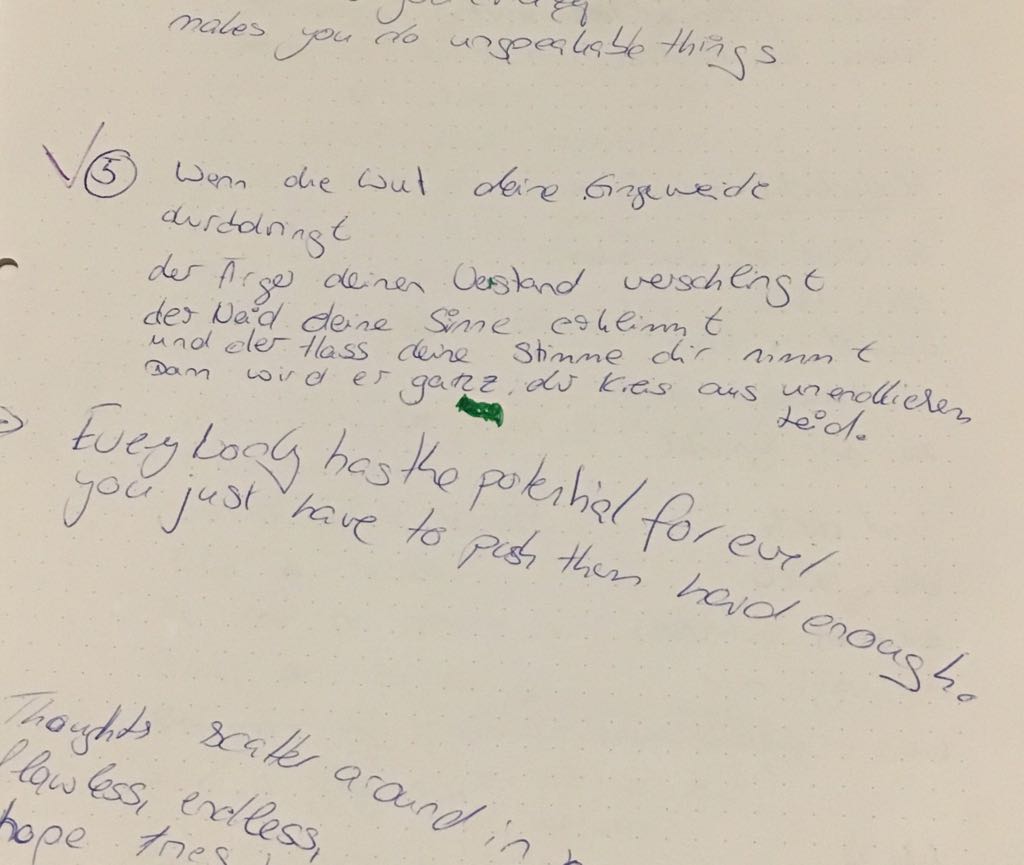 makes you do unspeakable things
5 Wenn die Wut deine Eingeweide
durchdringt
der Ärger deinen Verstand verschlingt
der Neid deine Sinne erklimmt
und der Hass deine Stimme dir nimmt
Dann wird er ganz, der Kreis aus unendlichem
Leid.
Everybody has the potential for evil
you just have to push them hard enough.
Thoughts scatter around in
flawless, endless,
hope tries